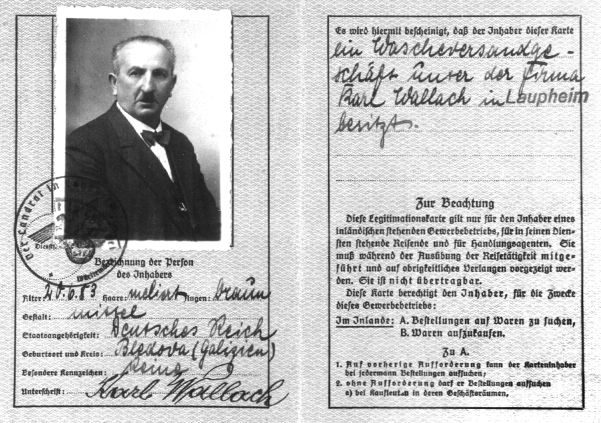 Der Landrat in
Bezeichnung der Person
des Inhabers
Alter 20.6.83 Haare: meliert Augen: braun
Gestalt: mittel
Staatsangehörigkeit: Deutsches Reich
Geburtsort und Kreis: (Galizien)
Besondere Kennzeichen: keine
Unterschrift: Karl Wallach
Es wird hiermit bescheinigt, daß der Inhaber dieser Karte
ein Wäscheversandge-
schäft unter der Firma
Karl Wallach in Laupheim
besitzt.
Zur Beachtung
Diese Legitimationskarte gilt nur für den Inhaber eines
inländischen stehenden Gewerbebetriebs, für in seinen Dien-
sten stehende Reisende und für Handlungsagenten. Sie
muß während der Ausübung der Reisetätigkeit mitge-
führt und auf obrigkeitliches Verlangen vorgezeigt wer-
den. Sie ist nicht übertragbar.
Diese Karte berechtigt den Inhaber, für die Zwecke
dieses Gewerbebetriebs:
Im Inlande: A. Bestellungen auf Waren zu suchen,
B. Waren aufzukaufen.
Zu A.
1. Auf vorherige Aufforderung kann der Karteninhaber
bei jedermann Bestellungen aufsuchen;
2. ohne Aufforderung darf er Bestellungen aufsuchen
a) bei Kaufleuten in deren Geschäftsräumen,